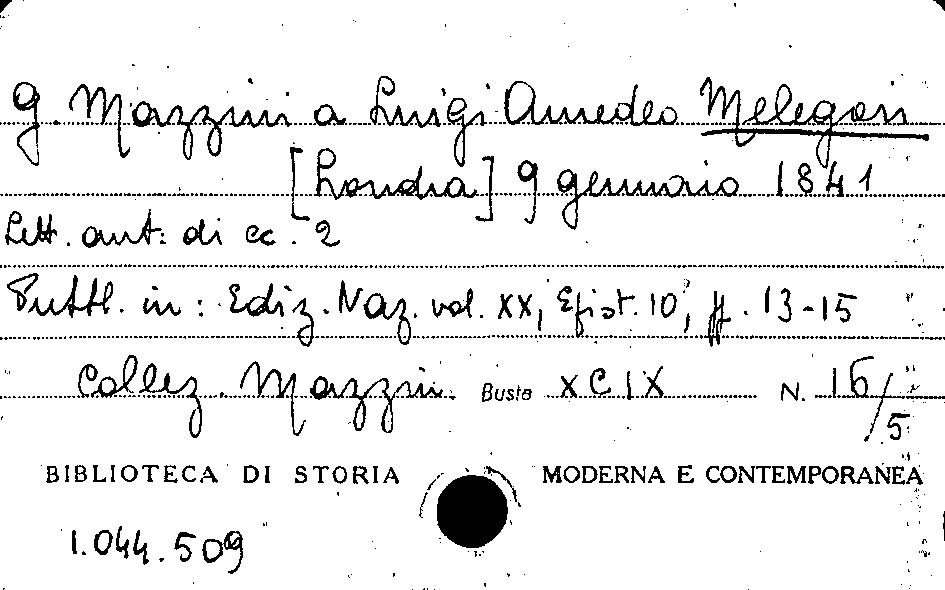 G. Mazzini a Luigi Amedeo Melegari
[Londra] 9 gennaio 1841
Lett. aut. di cc. 2
Pubbl. in: Ediz. Naz. vol. XX, Epist. 10, pp. 13-15
Collez. Mazzini. Busta XCIX N. 16/5
BIBLIOTECA DI STORIA MODERNA E CONTEMPORANEA
1.044.509